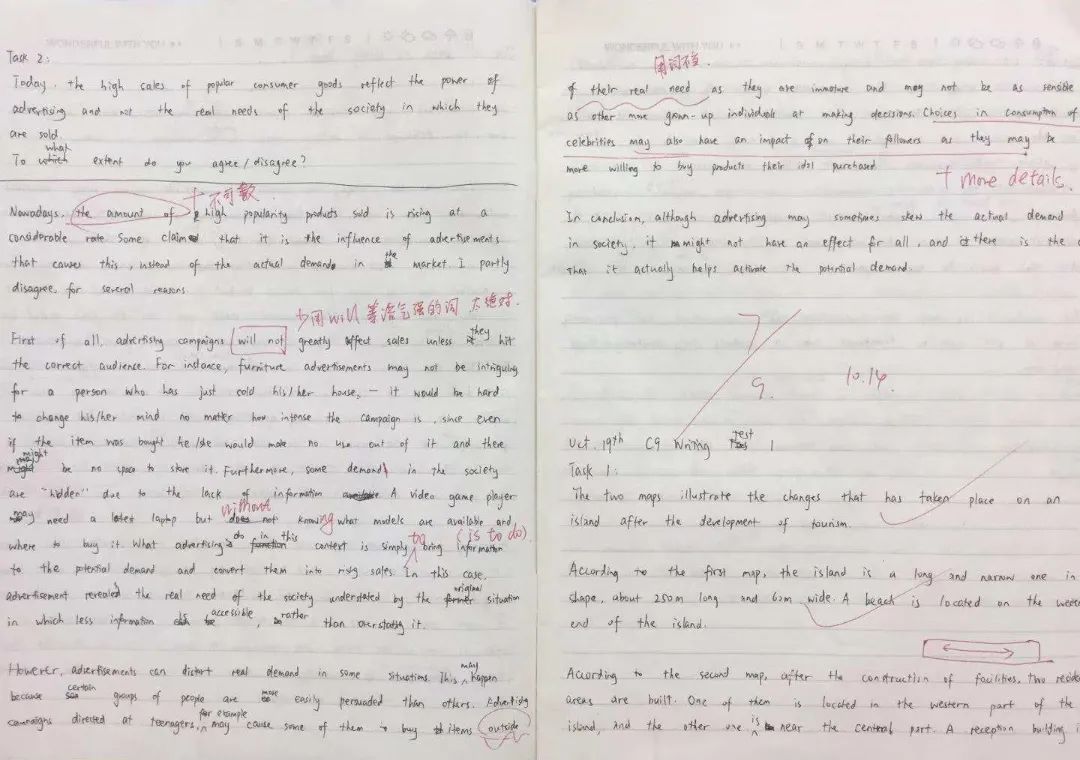 Task 2:
Today, the high sales of popular consumer goods reflect the power of
advertising and not the real needs of the society in which they
are sold.
what
To which extent do you agree/disagree?
+不可数.
Nowadays, the amount of high popularity products sold is rising at a
considerable rate. Some claim that it is the influence of advertisements
that causes this, instead of the actual demand in the market. I partly
disagree, for several reasons.
少用will等语气强的词 太绝对.
First of all, advertising campaigns will not greatly affect sales unless they hit
the correct audience. For instance, furniture advertisements may not be intriguing
for a person who has just cold his/her house, — it would be hard
to change his/her mind no matter how intense the campaign is, since even
if the item was bought he/she would make no use out of it and there
might be no space to store it. Furthermore, some demand in the society
are "hidden" due to the lack of information. A video game player
without
may need a latest laptop but not knowing what models are available and
to (is to do).
where to buy it. What advertising do in this context is simply bring information
to the potential demand and convert them into rising sales. In this case,
advertisement revealed the real need of the society understated by the original situation
in which less information accessible, rather than overstating it.
However, advertisements can distort real demand in some situations. This may happen
because certain groups of people are more easily persuaded than others. Advertising
campaigns directed at teenagers, for example may cause some of them buy items outside
用词不当.
of their real need as they are immature and may not be as sensible
as other more grown-up individuals at making decisions. Choices in consumption of
celebrities may also have an impact on their followers as they may be
more willing to buy products their idol purchased.
+ more details.
In conclusion, although advertising may sometimes skew the actual demand
in society, it might not have an effect for all, and there is the
that it actually helps activate the potential demand.
7
9.
10.14.
Oct. 19th C9 Writing Test 1
Task 1:
The two maps illustrate the changes that has taken place on an
island after the development of tourism.
According to the first map, the island is a long and narrow one in
shape, about 250m long and 60m wide. A beach is located on the
end of the island.
According to the second map, after the construction of facilities, two
areas are built. One of them is located in the western part of the
island, and the other one is near the central part. A reception building